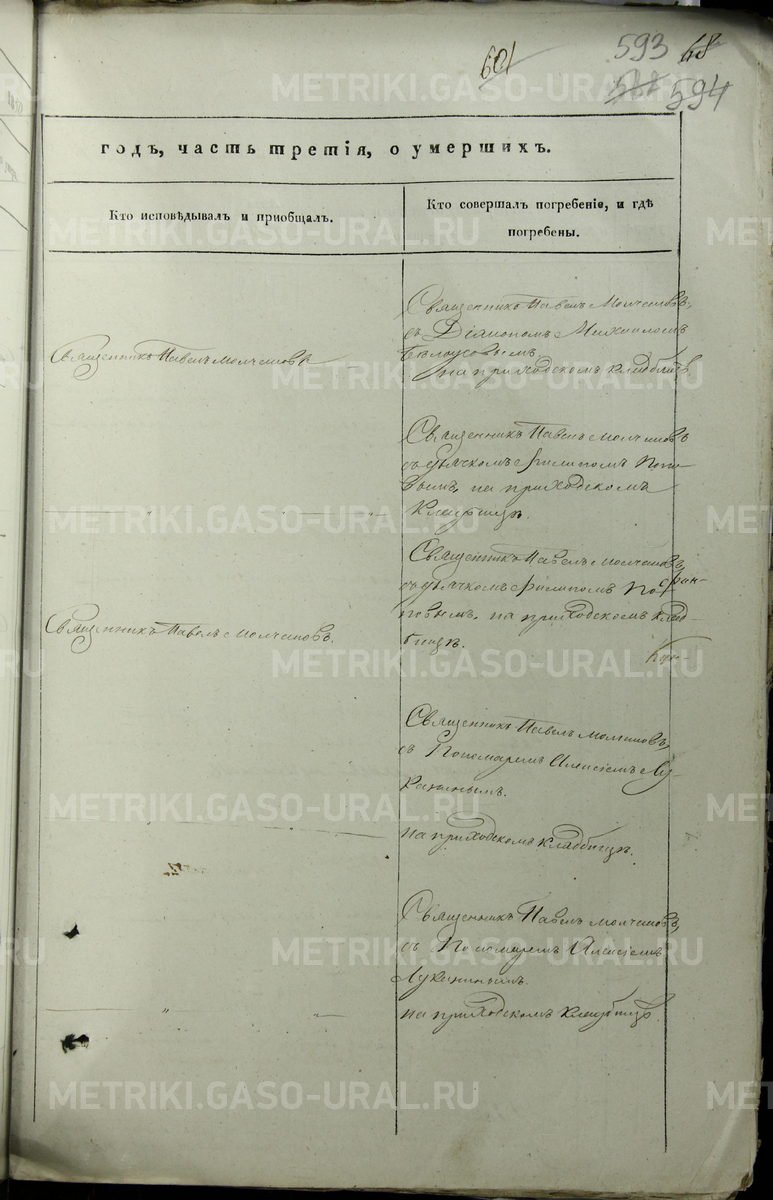 601
593 48
594
годъ, часть третія, о умершихъ.
Кто исповѣдывалъ и пріобщалъ.
Кто совершалъ погребеніе, и гдѣ
погребены.
Священникъ Павелъ Молчановъ,
съ Діакономъ Михаиломъ
Белоусовымъ,
на приходскомъ кладбищѣ
Священникъ Павелъ Молчановъ
Священникъ Павелъ Молчановъ
съ дьячкомъ Филипомъ Попо-
вымъ, на приходскомъ
кладбищѣ.
Священникъ Павелъ Молчановъ,
съ дьячкомъ Филипомъ По-
повымъ, на приходскомъ клад-
бищѣ.
Священникъ Павелъ Молчановъ.
Священникъ Павелъ Молчановъ,
съ Пономаремъ Алексіемъ Лу-
канинымъ.
на приходскомъ кладбищѣ.
Священникъ Павелъ Молчановъ,
съ Пономаремъ Алексіемъ
Луканинымъ.
на приходскомъ кладбищѣ.
METRIKI.GASO-URAL.RU